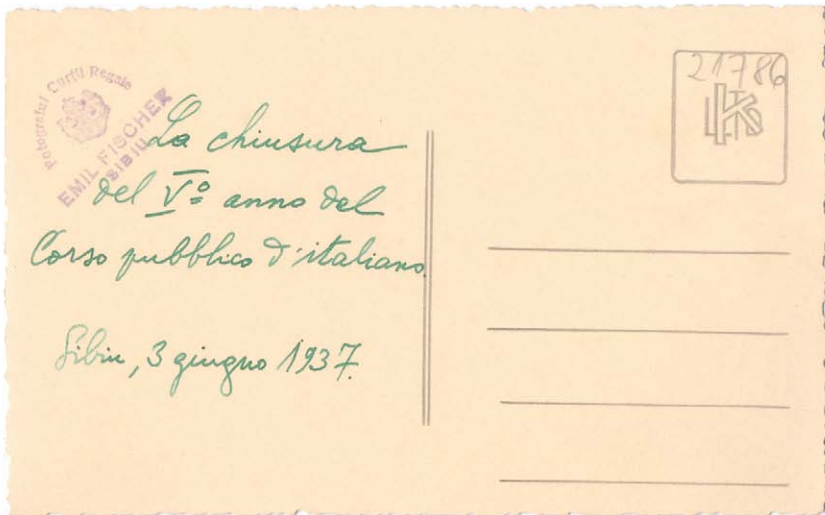 Fotograful Curții Regale
EMIL FISCHER
SIBIU
21786
La chiusura
del Vº anno del
Corso pubblico d'italiano.
Sibiu, 3 giugno 1937.